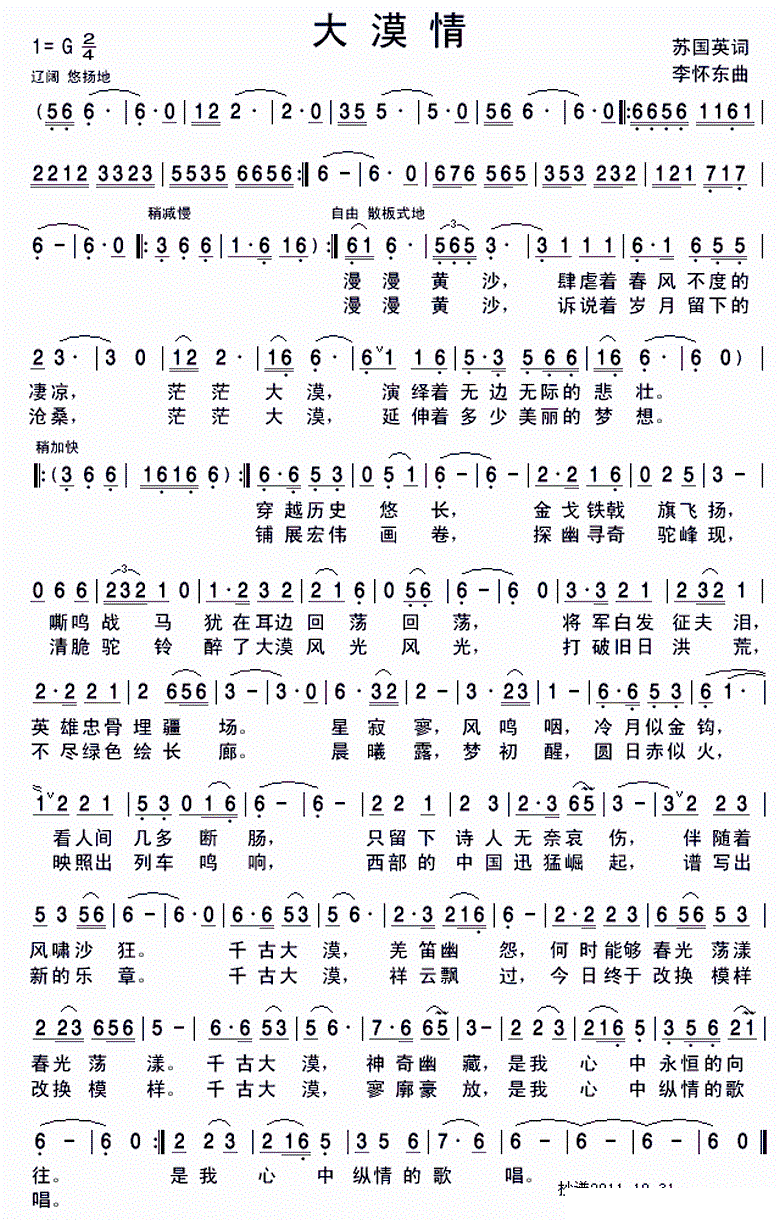 大漠情
1=G 2/4
苏国英词
辽阔 悠扬地
李怀东曲
(56 6· | 6·0 | 12 2· | 2·0 | 35 5· | 5·0 | 56 6· | 6·0 ‖: 6656 1161 |
2212 3323 | 5535 6656 :‖ 6 - | 6· 0 | 0676 565 | 353 232 | 121 717 |
稍减慢 自由 散板式地
6 - | 6·0 ‖: 3 6 6 | 1·6 16 ) :‖ 61 6· | 565 3· | 3 1 1 1 | 6·1 6 5 5 |
漫漫黄沙, 肆虐着春风不度的
漫漫黄沙, 诉说着岁月留下的
2 3· | 3 0 | 12 2· | 16 6· | 6 ∨ 1 1 6 | 5·3 5 6 6 | 16 6· | 6 0 ) |
凄凉, 茫茫大漠, 演绎着无边无际的悲壮。
沧桑, 茫茫大漠, 延伸着多少美丽的梦想。
稍加快
‖: (3 6 6 | 1616 6 ) :‖ 6·6 5 3 | 0 5 1 | 6 - | 6 - | 2·2 1 6 | 0 2 5 | 3 - |
穿越历史悠长, 金戈铁戟旗飞扬,
铺展宏伟画卷, 探幽寻奇驼峰现,
0 6 6 | 232 1 0 | 1·2 3 2 | 2 1 6 | 0 56 | 6 - | 6 0 | 3·3 2 1 | 2 32 1 |
嘶鸣战马犹在耳边回荡回荡, 将军白发征夫泪,
清脆驼铃醉了大漠风光风光, 打破旧日洪荒,
2·2 2 1 | 2 656 | 3 - | 3·0 | 6·32 | 2 - | 3·23 | 1 - | 6·6 5 3 | 6 1· |
英雄忠骨埋疆场。 星寂寥,风鸣咽,冷月似金钩,
不尽绿色绘长廊。 晨曦露,梦初醒,圆日赤似火,
1 ∨ 2 2 1 | 5 3 0 1 6 | 6 - | 6 - | 2 2 1 | 2 3 | 2·3 65 | 3 - | 3 ∨ 2 2 3 |
看人间几多断肠, 只留下诗人无奈哀伤,伴随着
映照出列车鸣响, 西部的中国迅猛崛起,谱写出
5 3 56 | 6 - | 6·0 | 6·6 53 | 5 6· | 2·3 216 | 6 - | 2·2 2 3 | 6 56 5 3 |
风啸沙狂。 千古大漠,羌笛幽怨,何时能够春光荡漾
新的乐章。 千古大漠,祥云飘过,今日终于改换模样
2 23 656 | 5 - | 6·6 53 | 5 6· | 7·6 65 | 3 - | 2 2 3 | 216 5 | 3 5 6 21 |
春光荡漾。千古大漠,神奇幽藏,是我心中永恒的向
改换模样。千古大漠,寥廓豪放,是我心中纵情的歌
6 - | 6 0 :‖ 2 2 3 | 2 16 5 | 3 5 6 | 7·6 | 6 - | 6 - | 6 0 ‖
往。 是我心中纵情的歌唱。
唱。